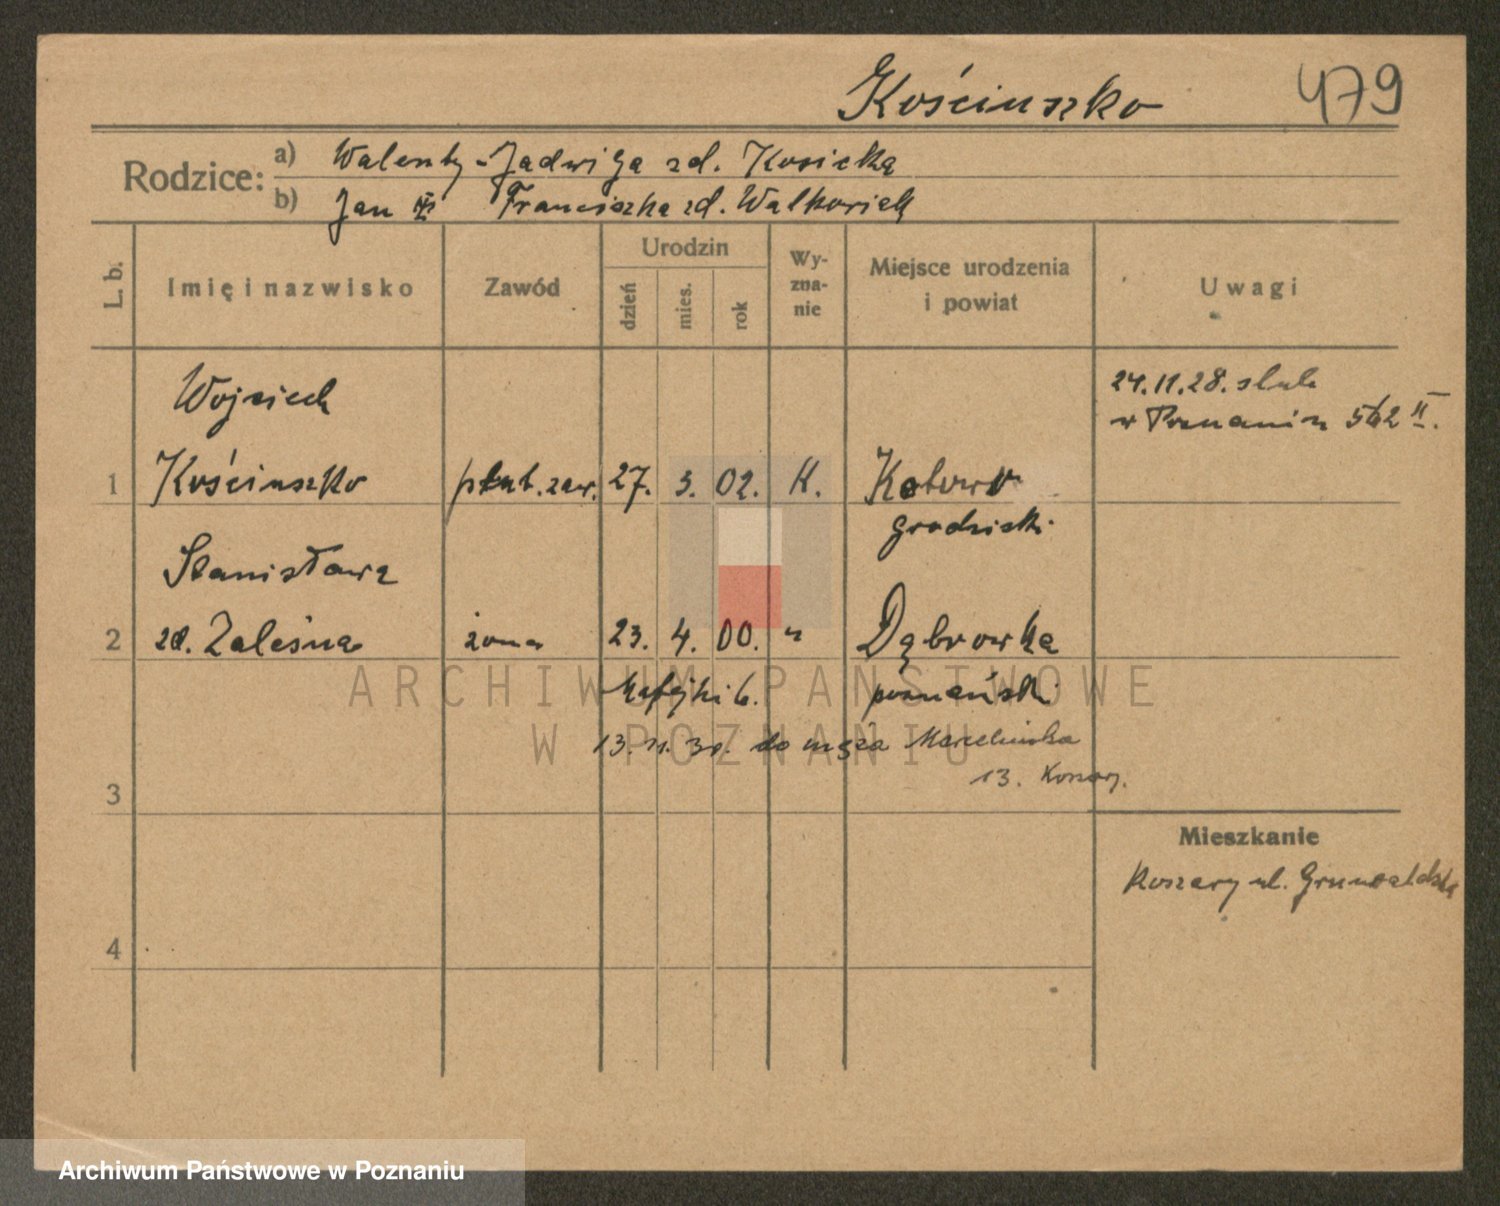 Kościuszko 479
Rodzice:
a) Walenty - Jadwiga zd. Kosicka
b) Jan Franciszka zd. Walkowiak
L. b.
Imię i nazwisko
Zawód
Urodzin
dzień
mies.
rok
Wy-
zna-
nie
Miejsce urodzenia
i powiat
Uwagi
Wojciech
24.11.28. ślub
w Poznaniu
1 Kościuszko plut. zaw. 27. 3. 02. K. Kotowo
grodziski
Stanisława
2 zd. Zaleśna żona 23. 4. 00. " Dąbrowka
Matejki 6. poznański
13. 11. 30. do męża Marcelińska
13. Koszary.
3
Mieszkanie
Koszary ul. Grunwaldzka
4
ARCHIWUM PAŃSTWOWE
W POZNANIU
Archiwum Państwowe w Poznaniu